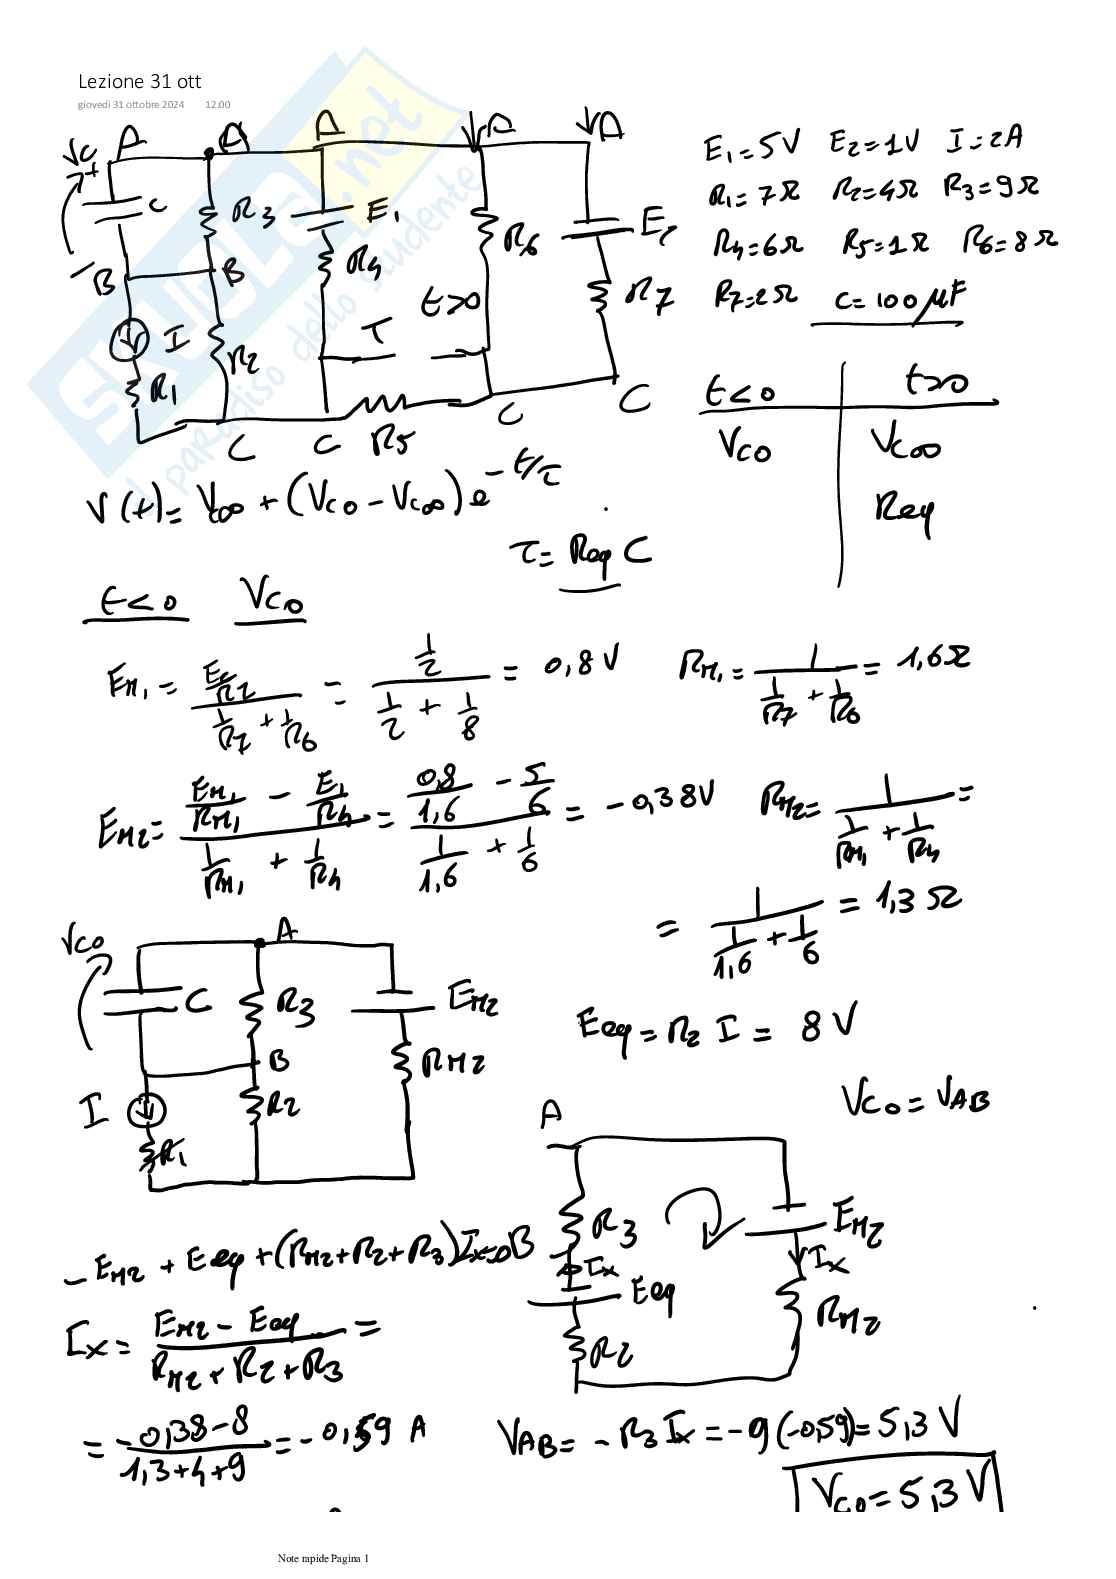 Lezione 31 ott
giovedì 31 ottobre 2024 12:00
A A A A A
Vc + C R3 E1 R6 E2
E1 = 5V E2 = 1V I = 2A
R1 = 7Ω R2 = 4Ω R3 = 9Ω
R4 = 6Ω R5 = 1Ω R6 = 8Ω
R7 = 2Ω C = 100 μF
- B B R4 t>0 R7
I R2 T
R1
C C R5 C C
t<0 t>0
Vc0 Vc∞
Req
V(t) = Vc∞ + (Vc0 - Vc∞) e^(-t/τ)
τ = Req C
t<0 Vc0
EM1 = (E2/R7)/(1/R7 + 1/R6) = (1/2)/(1/2 + 1/8) = 0,8 V RM1 = 1/(1/R7 + 1/R6) = 1,6Ω
EM2 = (EM1/RM1 - E1/R4)/(1/RM1 + 1/R4) = (0,8/1,6 - 5/6)/(1/1,6 + 1/6) = -0,38V RM2 = 1/(1/RM1 + 1/R4) =
= 1/(1/1,6 + 1/6) = 1,3Ω
Vc0 A
C R3 EM2
B RM2
I R2
R1
Eeq = R2 I = 8 V
Vc0 = VAB
A
R3 EM2
B Ix Ix
Eeq RM2
R2
- EM2 + Eeq + (RM2 + R2 + R3) Ix = 0
Ix = (EM2 - Eeq)/(RM2 + R2 + R3) =
= (-0,38 - 8)/(1,3 + 4 + 9) = -0,59 A
VAB = - R3 Ix = -9 (-0,59) = 5,3 V
Vc0 = 5,3 V
Note rapide Pagina 1
SKUOLA.net
il paradiso dello studente